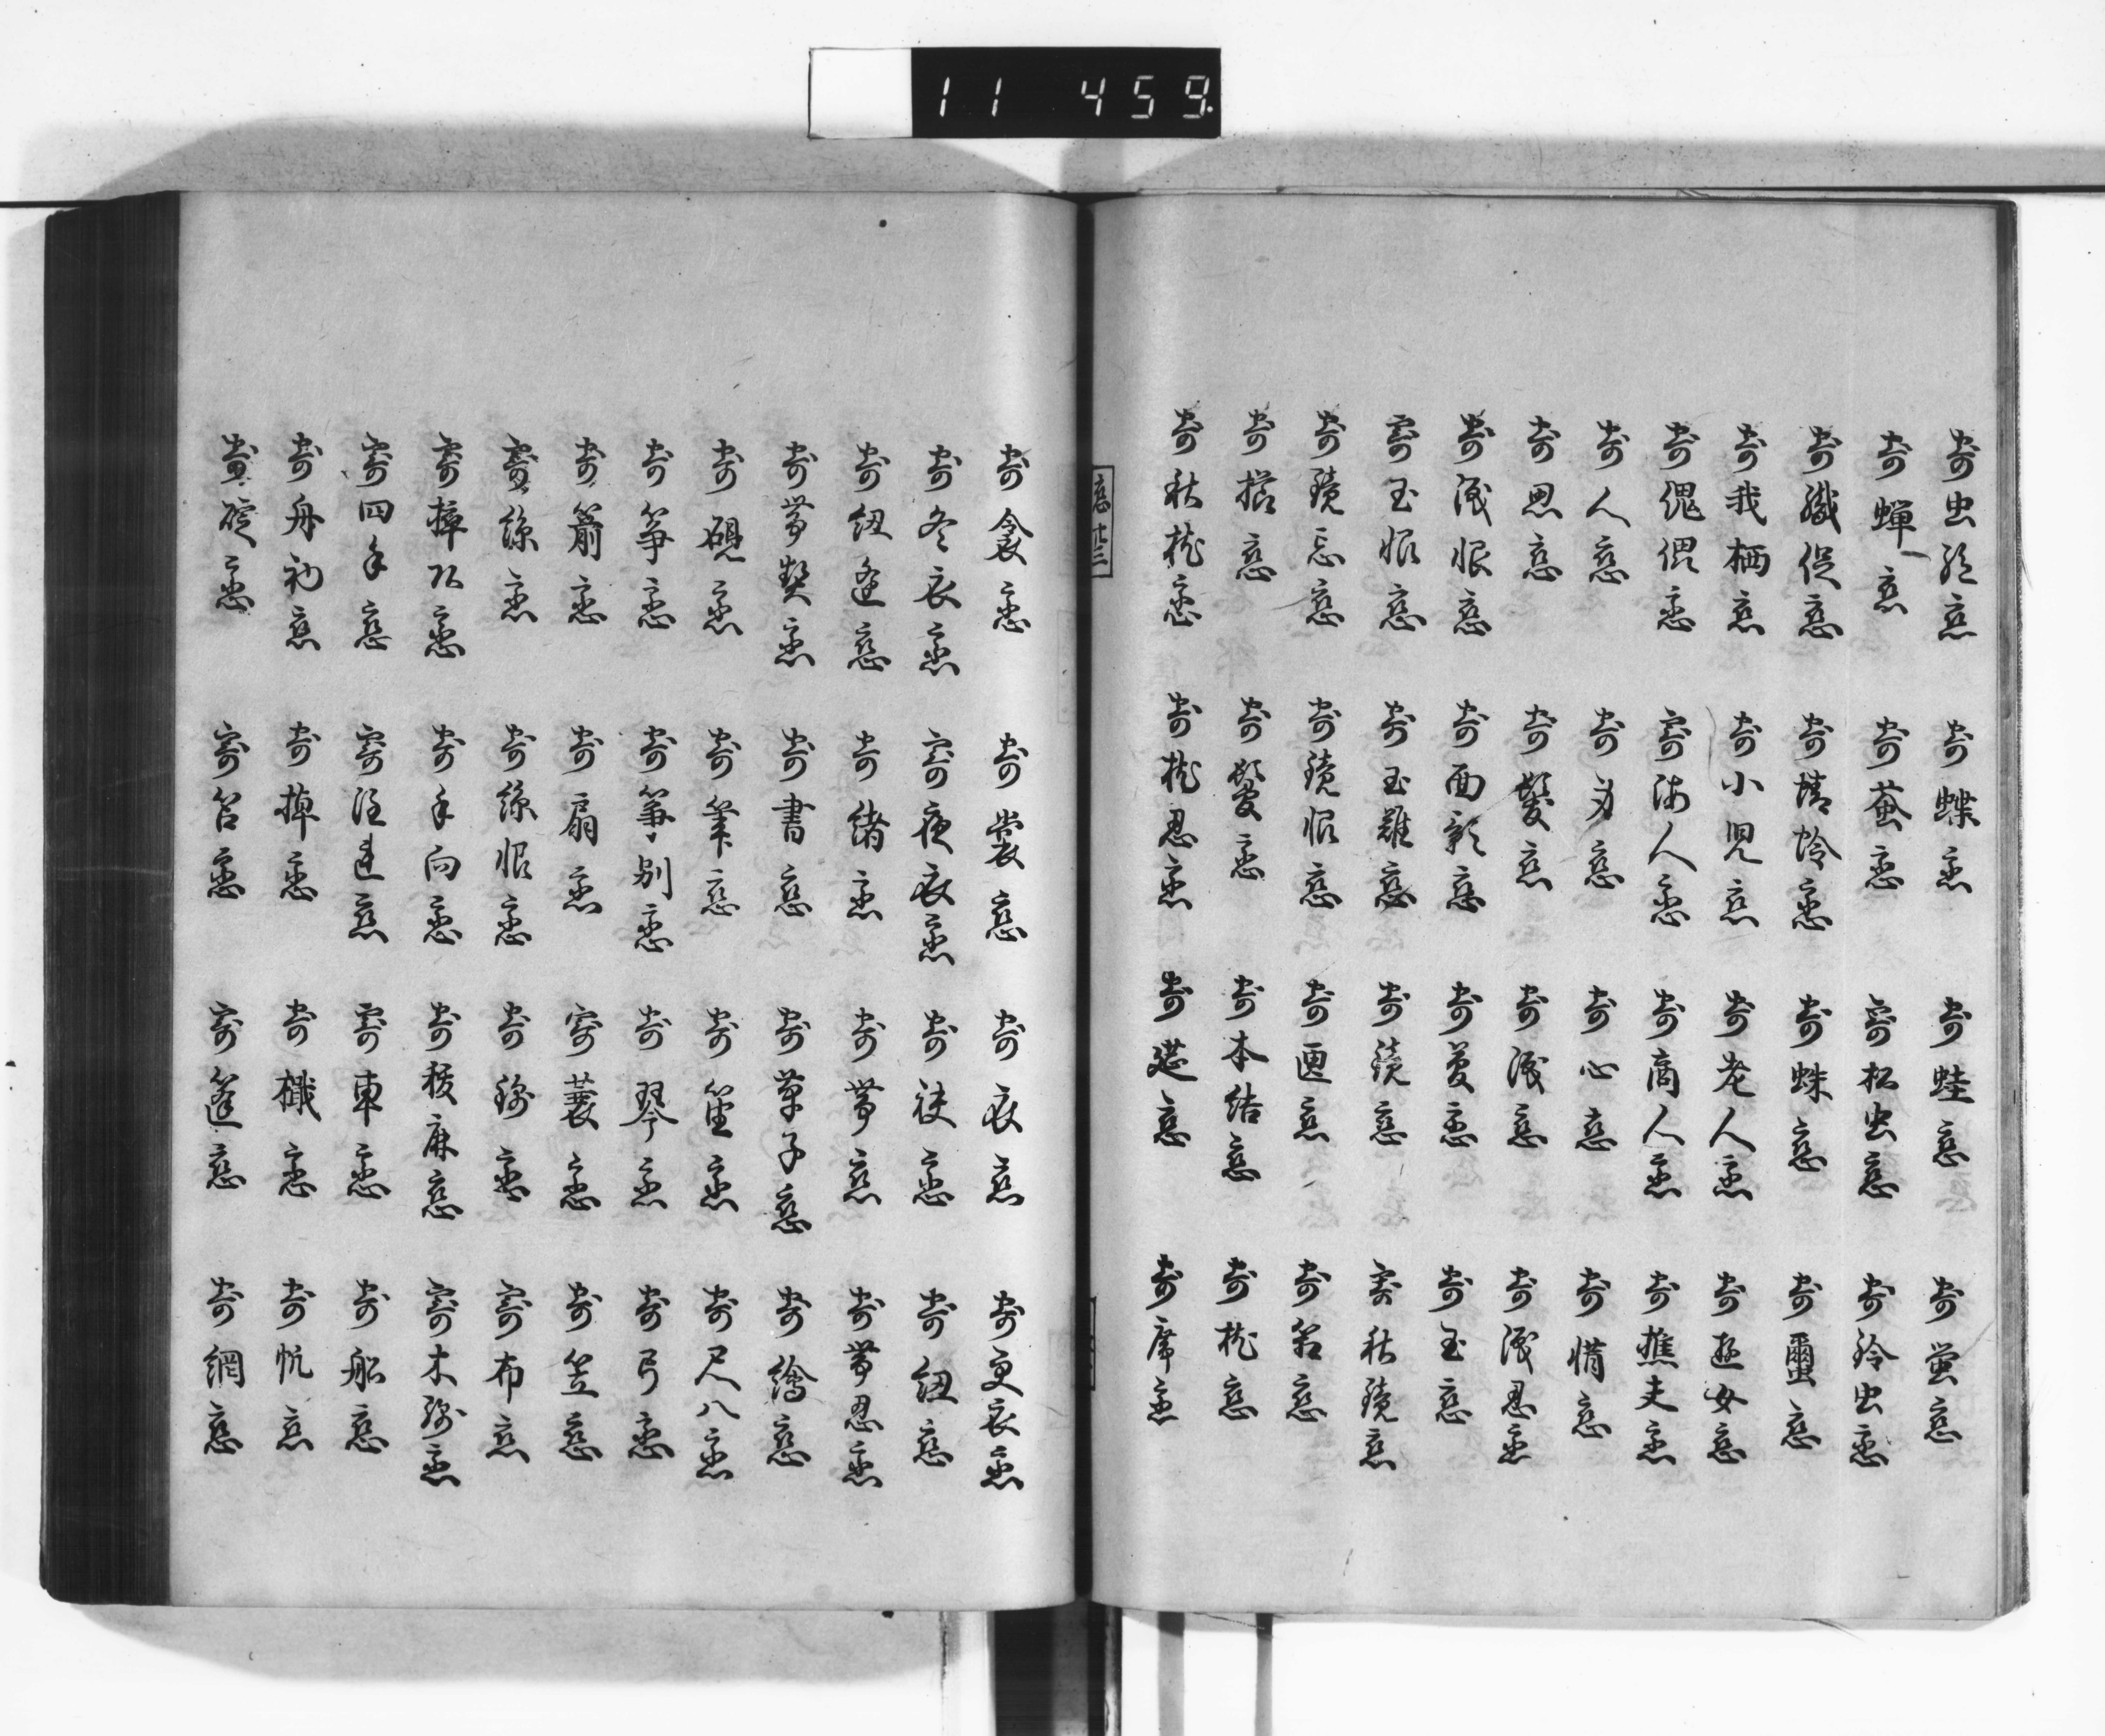 寄虫恋 寄蝶恋 寄蛙恋 寄蛍恋
寄蝉恋 寄蚕恋 寄松虫恋 寄鈴虫恋
寄織促恋 寄蜻蛉恋 寄蛛恋 寄恋
寄我栖恋 寄小児恋 寄老人恋 寄遊女恋
寄傀儡恋 寄海人恋 寄商人恋 寄樵夫恋
寄人恋 寄身恋 寄心恋 寄情恋
寄思恋 寄髪恋 寄涙恋 寄涙忍恋
寄涙恨恋 寄面影恋 寄夢恋 寄玉恋
寄玉恨恋 寄玉難恋 寄鏡恋 寄秋鏡恋
寄鏡忘恋 寄鏡恨恋 寄匣恋 寄箱恋
寄恋 寄鬘恋 寄本結恋 寄枕恋
寄秋枕恋 寄枕忍恋 寄筵恋 寄席恋
恋 廿三
寄衾恋 寄裳恋 寄衣恋 寄更衣恋
寄冬衣恋 寄夜衣恋 寄袂恋 寄紐恋
寄紐逢恋 寄緒恋 寄帯恋 寄帯忍恋
寄帯契恋 寄書恋 寄草子恋 寄繪恋
寄硯恋 寄筆恋 寄笛恋 寄尺八恋
寄筝恋 寄筝別恋 寄琴恋 寄弓恋
寄箭恋 寄扇恋 寄蓑恋 寄笠恋
寄絲恋 寄絲恨恋 寄錦恋 寄布恋
寄恋 寄手向恋 寄麻恋 寄木綿恋
寄四手恋 寄注連恋 寄車恋 寄船恋
寄舟初恋 寄棹恋 寄檝恋 寄帆恋
寄碇恋 寄笘恋 寄篷恋 寄網恋
11 459